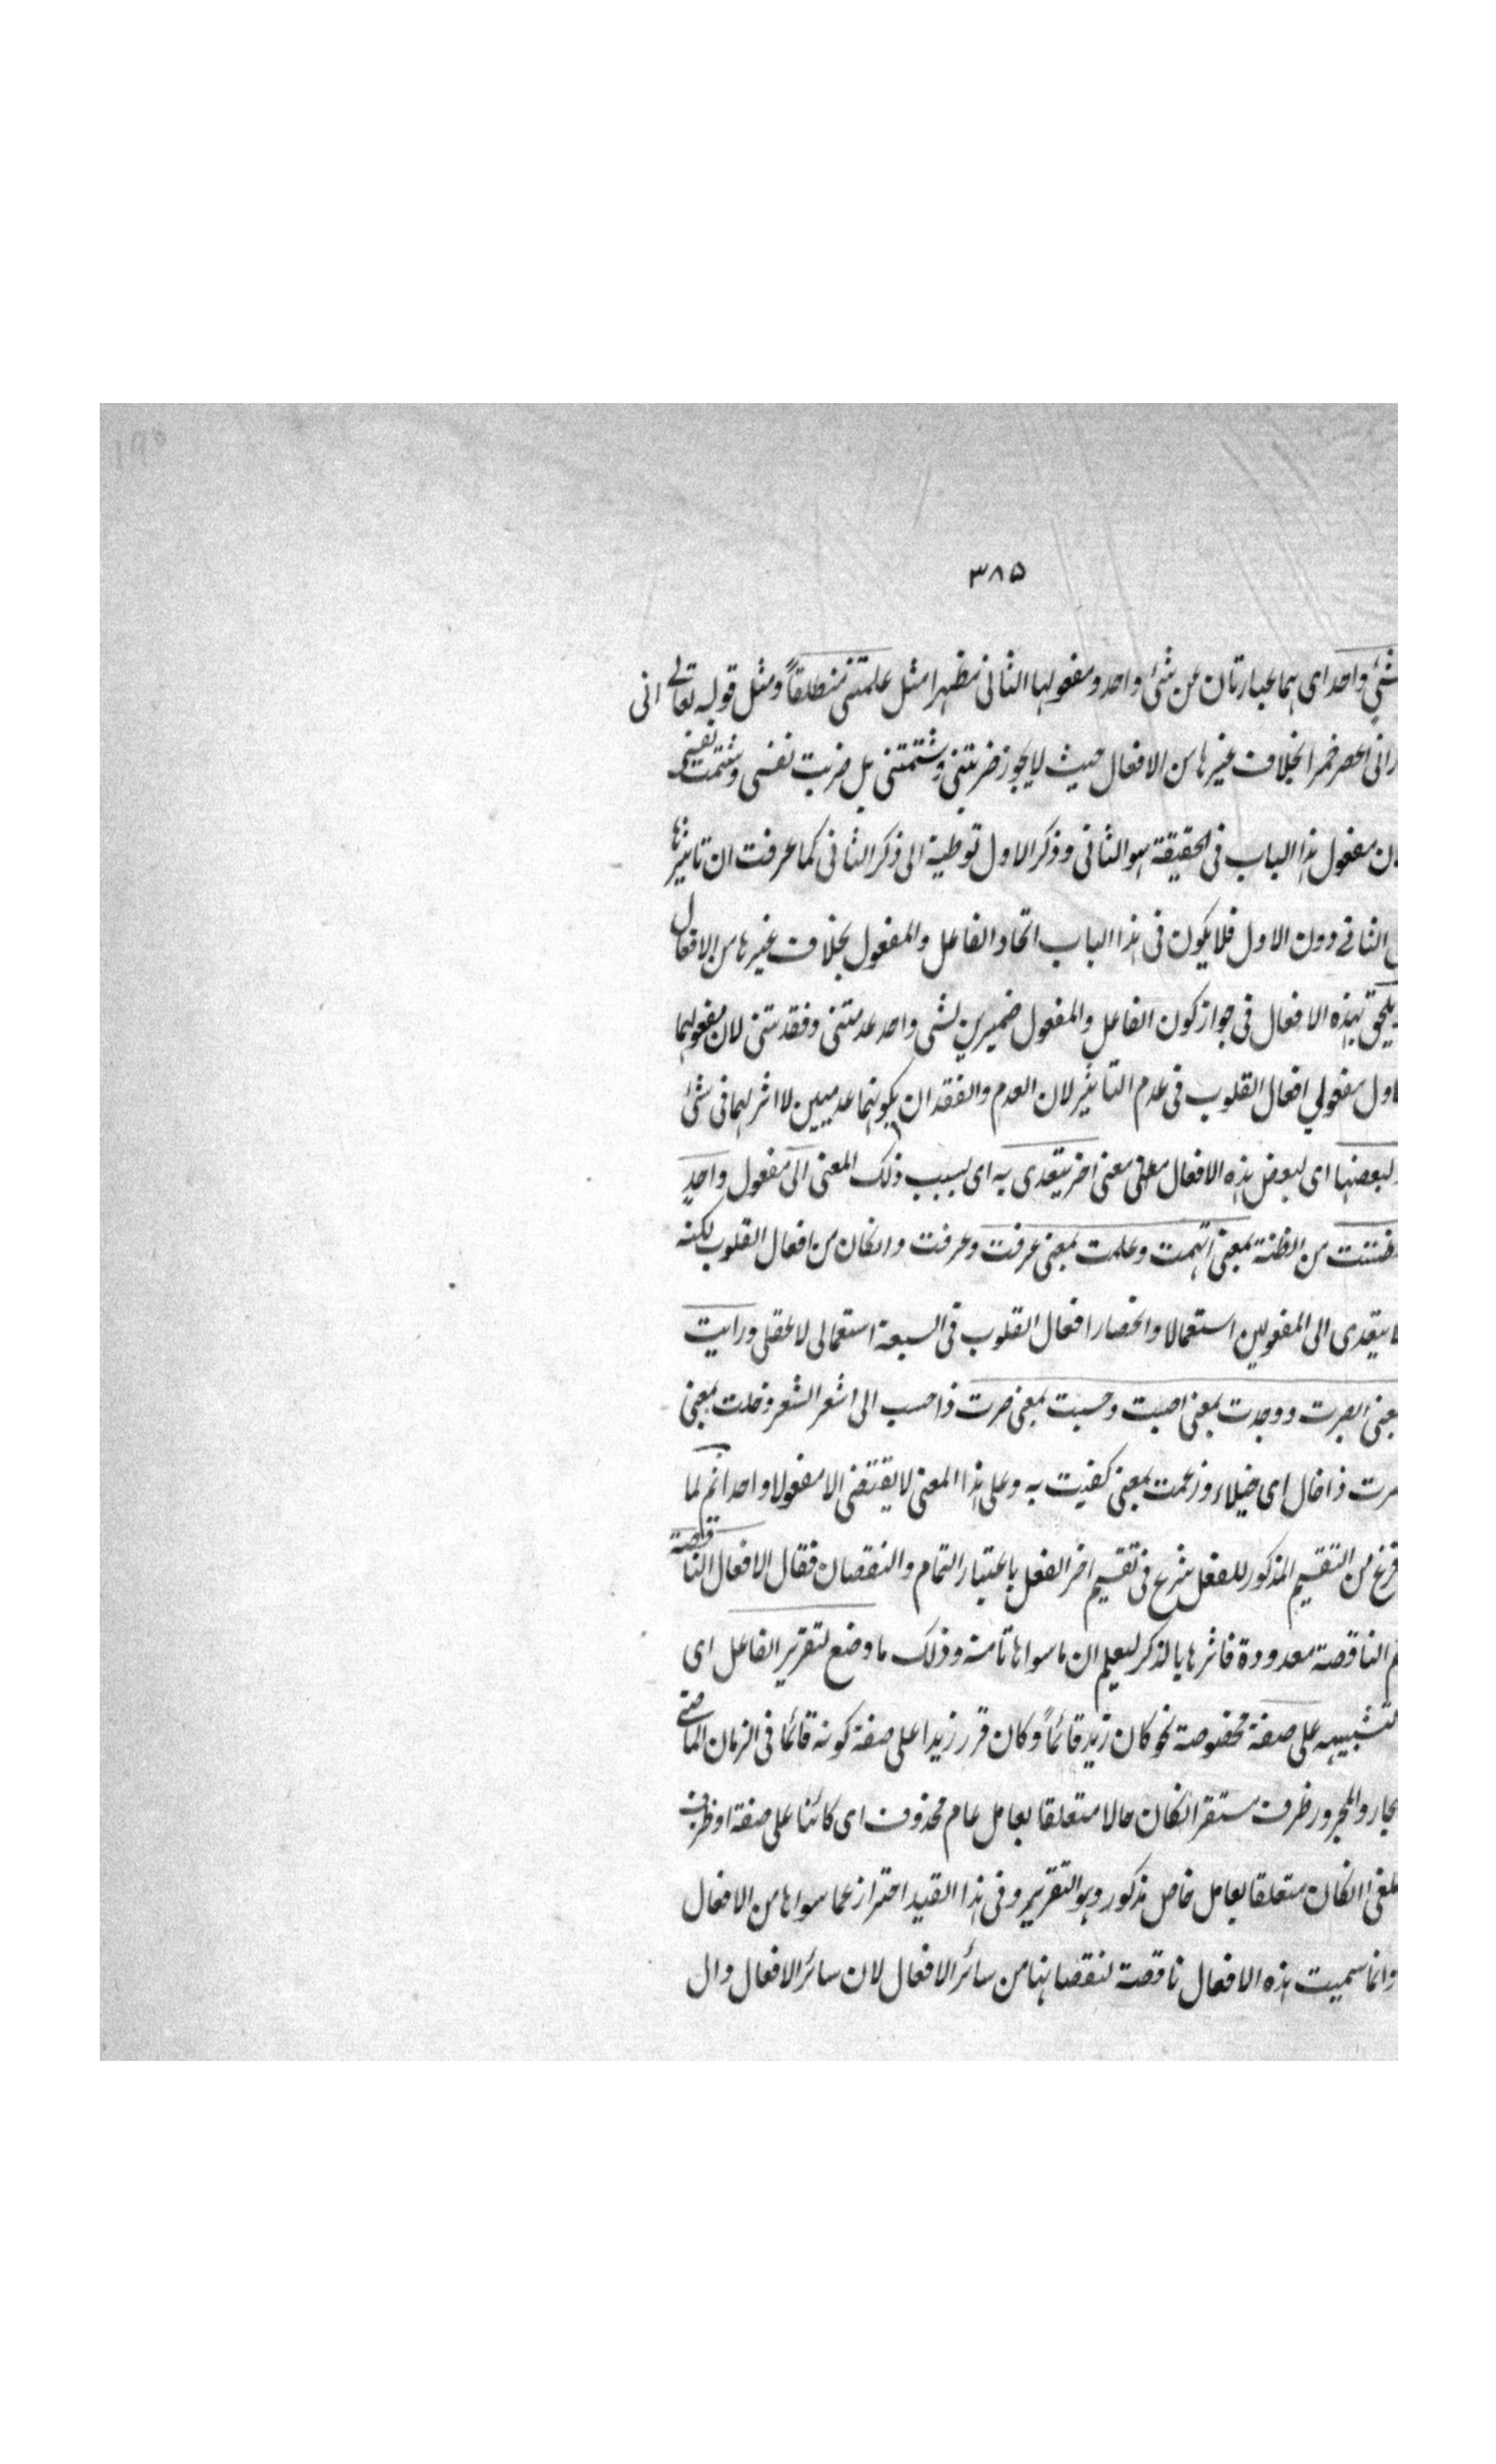 ۳۸۵
شئ واحد اى هما عبارتان عن شئ واحد ومفعولها الثانى مظهرا مثل علمتنى منطلقاً ومثل قوله تعالى انى
رانى اعصر خمرا بخلاف غيرها من الافعال حيث لا يجوز ضربتنى وشتمتنى بل ضربت نفسى وشتمت نفسى
ان مفعول هذا الباب فى الحقيقة هو الثانى وذكر الاول توطية الى ذكر الثانى كما عرفت ان تاثيرها
الثانى دون الاول فلا يكون فى هذا الباب اتحاد الفاعل والمفعول بخلاف غيرها من الافعال
يلحق بهذه الافعال فى جواز كون الفاعل والمفعول ضميرين لشى واحد عدمتنى وفقدتنى لان مفعولهما
اول مفعولي افعال القلوب فى عدم التاثير لان العدم والفقدان يكونهما عدميين لا اثر لهما فى شئ
لبعضها اى لبعض هذه الافعال معنى اخر يتعدى به اى بسبب ذلك المعنى الى مفعول واحدٍ
ظننت من الظنة بمعنى اتهمت وعلمت بمعنى عرفت وعرفت وانكان من افعال القلوب لكنه
يتعدى الى المفعولين استعمالا وانحصار افعال القلوب فى السبعة استعمالى لا عقلى ورايت
بمعنى ابصرت ووجدت بمعنى اصبت وحسبت بمعنى صرت ذا حسب الى اشعر الشعر وخلت بمعنى
صرت ذا خال اى خيلاء وزعمت بمعنى كفيت به وعلى هذا المعنى لا يقتضى الا مفعولا واحدا ثم لما
فرغ من التقسيم المذكور للفعل شرع فى تقسيم اخر الفعل باعتبار التمام والنقصان فقال الافعال الناقصة
الناقصة معدودة فاثرها بالذكر ليعلم ان ما سواها تامة وذلك ما وضع لتقرير الفاعل اى
لتثبيته على صفة مخصوصة نحو كان زيد قائماً وكان قرر زيدا على صفة كونه قائما فى الزمان الماضى
الجار والمجرور ظرف مستقر انكان حالا متعلقا بعامل عام محذوف اى كائنا على صفة او ظرف
ملغى انكان متعلقا بعامل خاص مذكور وهو التقرير وفى هذا القيد احتراز عما سواها من الافعال
وانما سميت هذه الافعال ناقصة لنقصانها من سائر الافعال لان سائر الافعال دال